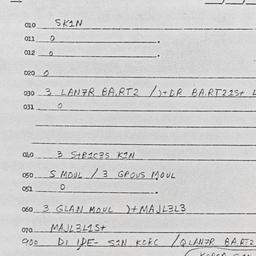 010 SKIN
011 0 .
012 0 .
020 0
030 3 LANZR BA.RT2 / )+DR BA.RT21S+ L
031 0
040 3 S+R1C3S K1N
050 S MOUL / 3 GROUS MOUL
051 0 .
060 3 GLAN MOUL )+MAJL3L3
070 MAJL3L1S+
900 D1 IDE- S1N KORC / QLANZR BA.RT2